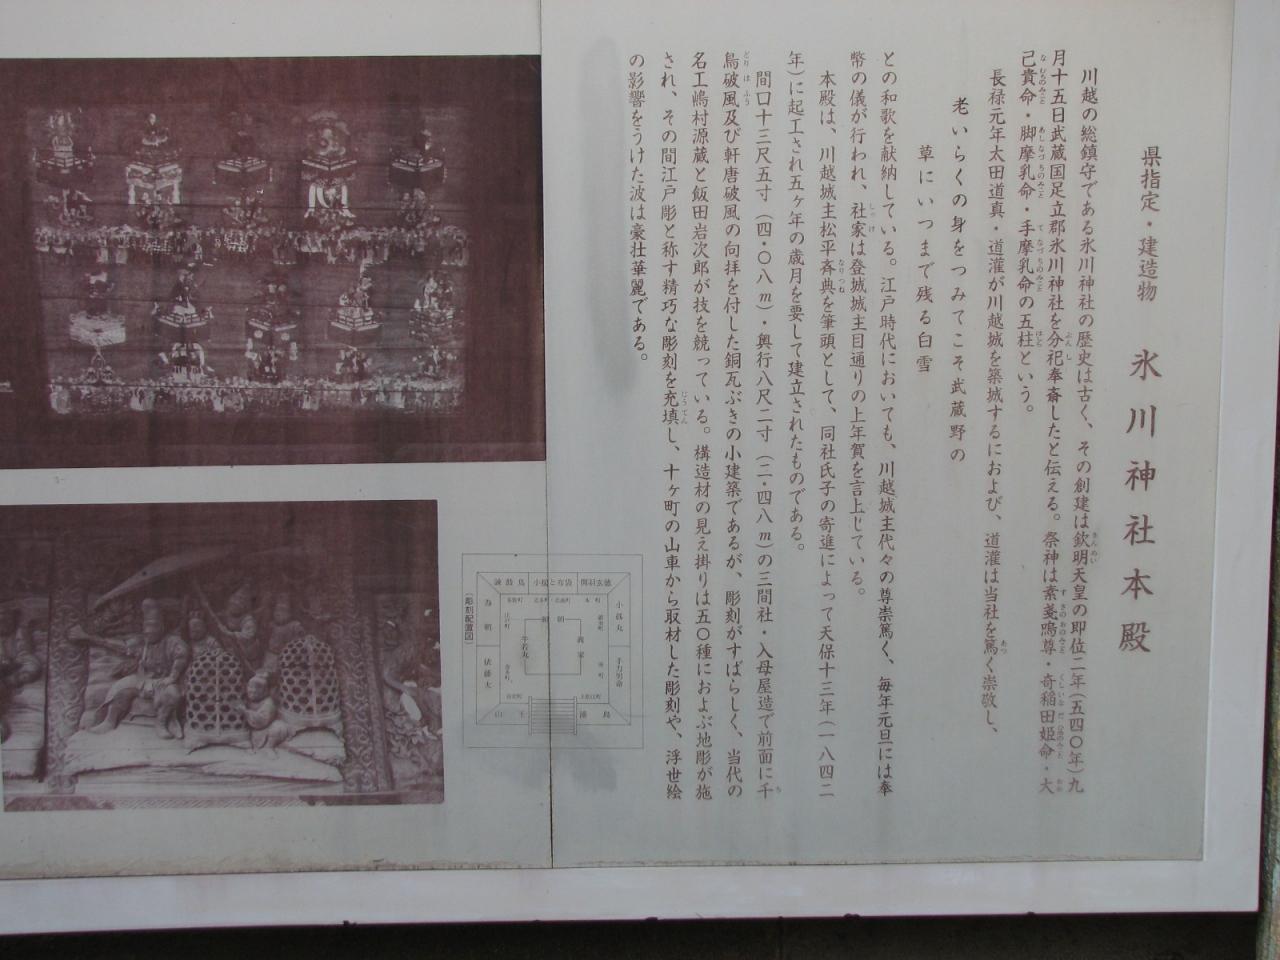 県指定・建造物　氷川神社本殿
川越の総鎮守である氷川神社の歴史は古く、その創建は欽明天皇の即位二年（五四〇年）九
月十五日武蔵国足立郡氷川神社を分祀奉斎したと伝える。祭神は素戔嗚尊・奇稲田姫命・大
己貴命・脚摩乳命・手摩乳命の五柱という。
長禄元年太田道真・道灌が川越城を築城するにおよび、道灌は当社を篤く崇敬し、
老いらくの身をつみてこそ武蔵野の
草にいつまで残る白雪
との和歌を献納している。江戸時代においても、川越城主代々の尊崇篤く、毎年元旦には奉
幣の儀が行われ、社家は登城城主目通りの上年賀を言上じている。
本殿は、川越城主松平斉典を筆頭として、同社氏子の寄進によって天保十三年（一八四二
年）に起工され五ヶ年の歳月を要して建立されたものである。
間口十三尺五寸（四・〇八m）・奥行八尺二寸（二・四八m）の三間社・入母屋造で前面に千
鳥破風及び軒唐破風の向拝を付した銅瓦ぶきの小建築であるが、彫刻がすばらしく、当代の
名工嶋村源蔵と飯田岩次郎が技を競っている。構造材の見え掛りは五〇種におよぶ地彫が施
され、その間江戸彫と称す精巧な彫刻を充填し、十ヶ町の山車から取材した彫刻や、浮世絵
の影響をうけた波は豪壮華麗である。
諫鼓鳥
小狐丸
手力男命
浦島
山王
俵藤太
為朝
頼朝
義家
牛若丸
（彫刻配置図）